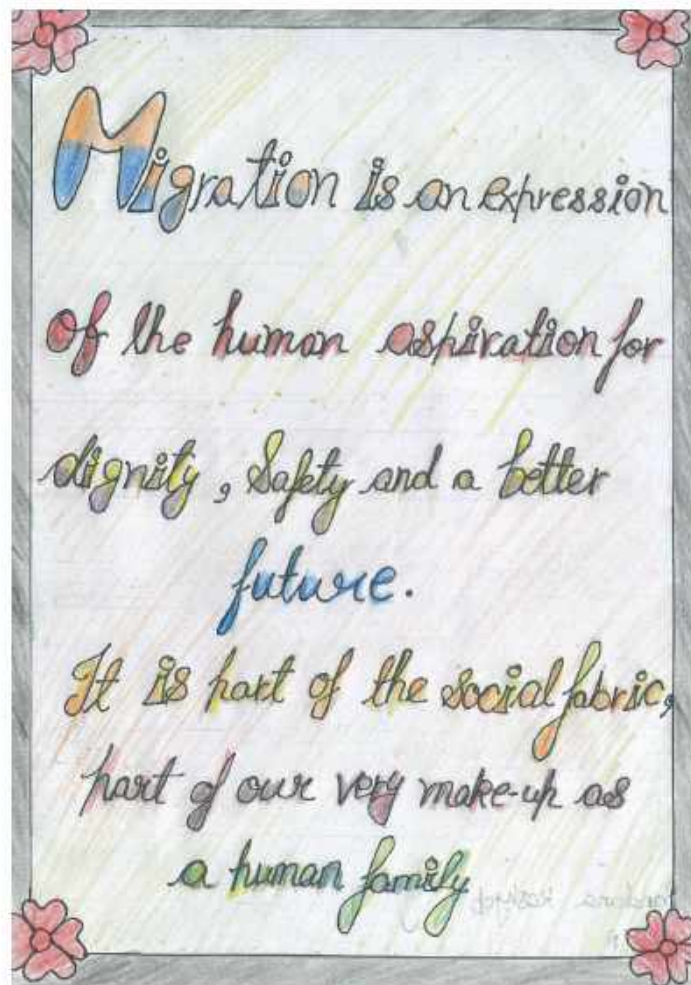 Migration is an expression
of the human aspiration for
dignity, Safety and a better
future.
It is part of the social fabric,
part of our very make-up as
a human family